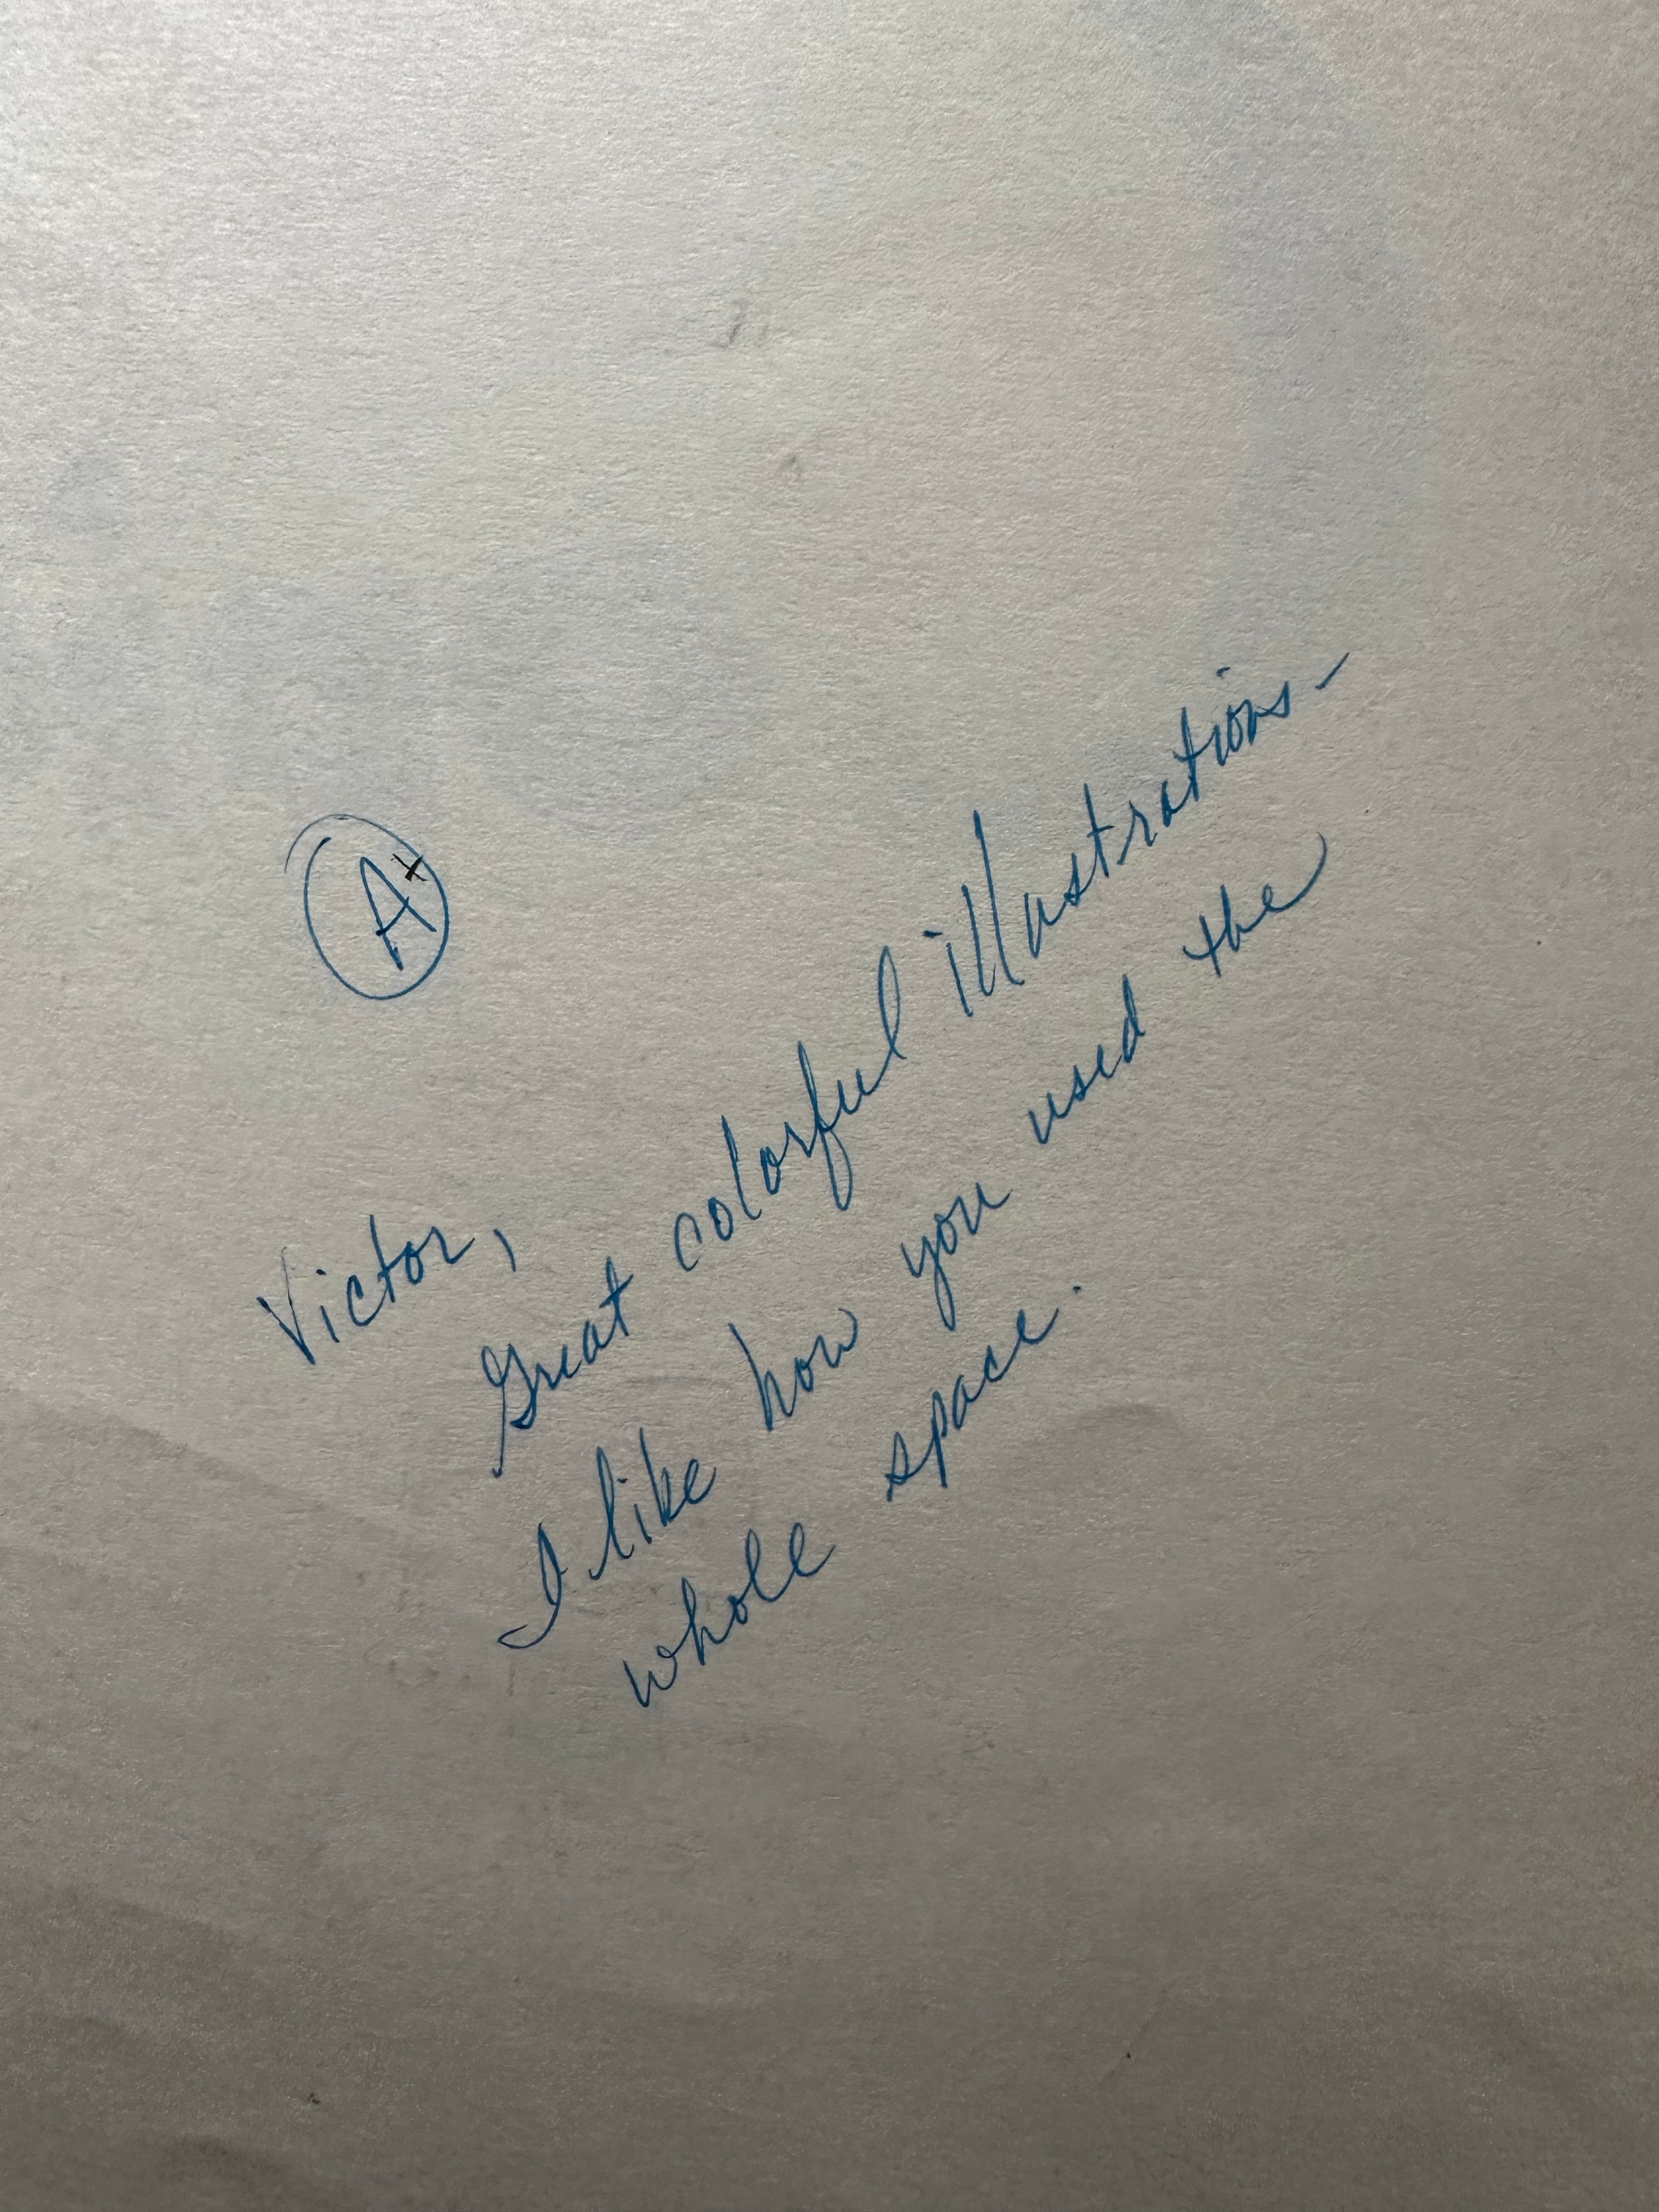 A+
Victor,
Great colorful illustrations-
I like how you used the
whole space.